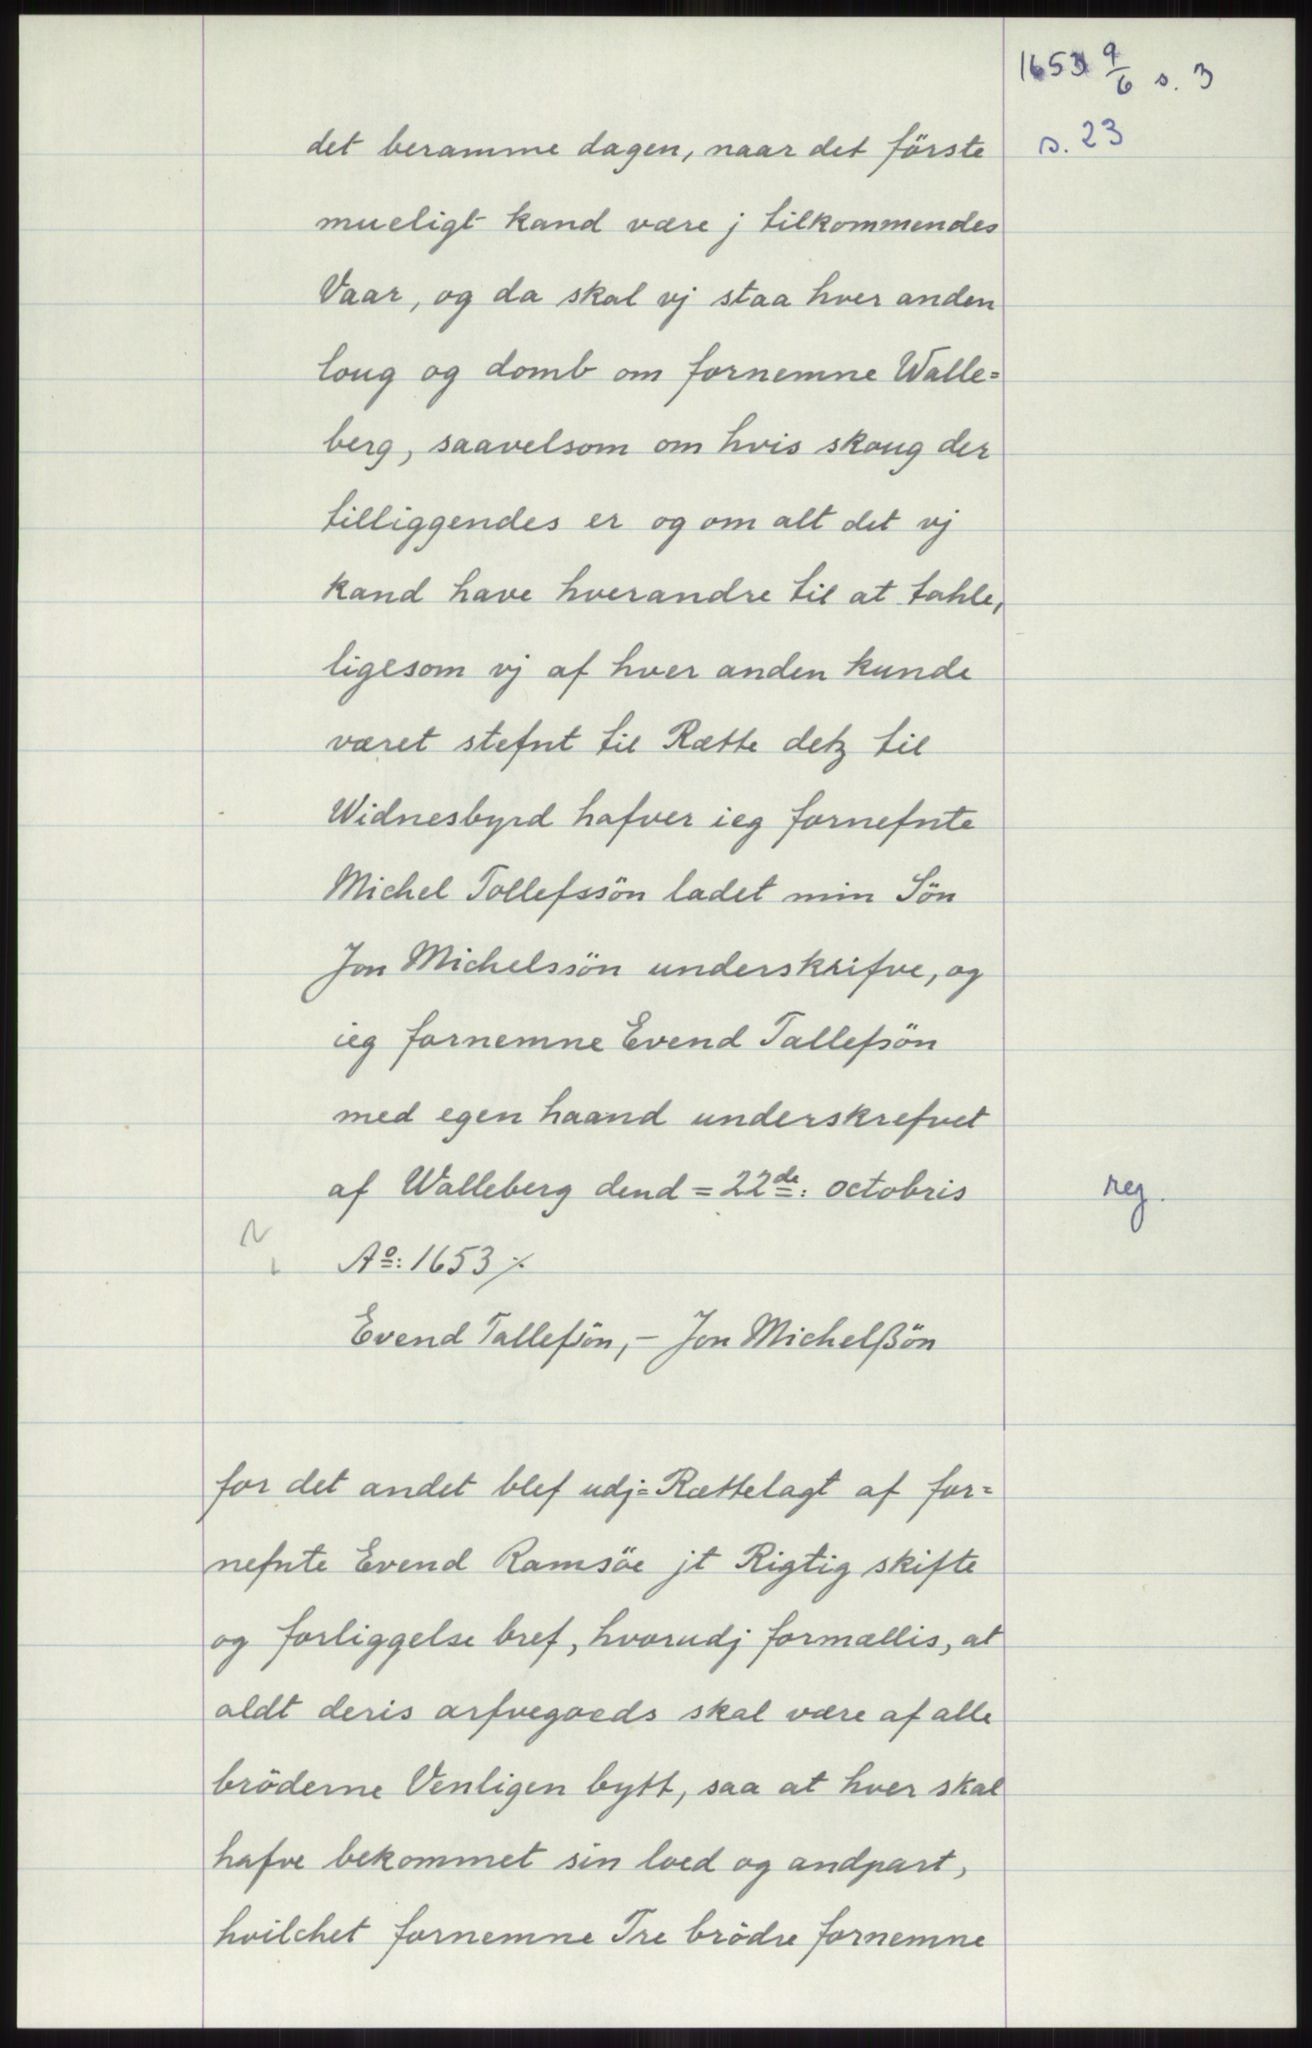 1653 9/6 s. 3
s. 23
det beramme dagen, naar det förste
mueligt kand være j tilkommendes
Vaar, og da skal vj staa hver anden
loug og domb om fornemne Walle=
berg, saavelsom om hvis skoug der
tilliggendes er og om alt det vj
kand have hverandre til at tahle,
ligesom vj af hver anden kunde
været stefnt til Rætte detz til
Widnesbyrd hafver ieg fornefnte
Michel Tollefssön ladet min Sön
Jon Michelssön underskrifve, og
ieg fornemne Evend Tallefsön
med egen haand underskrefvet
af Walleberg dend = 22de: octobris
reg.
Ao: 1653 ⁒
Evend Tallefsön, – Jon Michelßön
for det andet blef udj=Rættelagt af for=
nefnte Evend Ramsöe jt Rigtig skifte
og forliggelse bref, hvorudj formællis, at
aldt deris arfvegoeds skal være af alle
bröderne Venligen bytt, saa at hver skal
hafve bekommet sin loed og andpart,
hvilchet fornemne Tre brödre fornemne